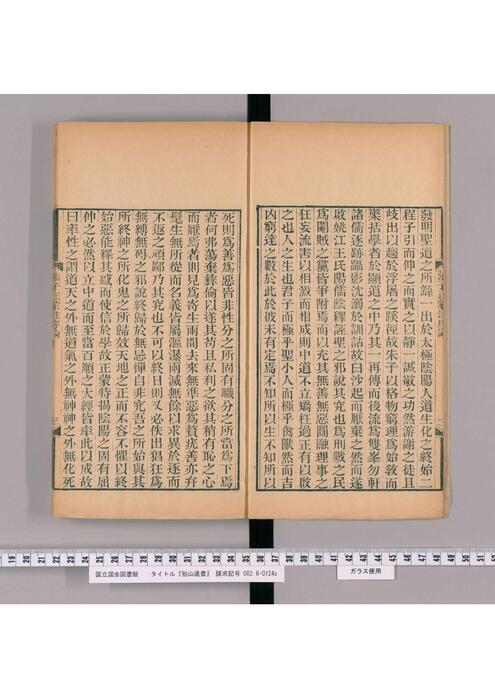 發明聖道之所繇一出於太極陰陽人道生化之終始二
程子引而伸之而實之以靜一誠敬之功然游謝之徒且
岐出以趨於浮屠之蹊徑故朱子以格物窮理爲始敎而
檠括學者於顯道之中乃其一再傳而後流爲雙峯勿軒
諸儒逐跡躡影沈溺於訓詁故白沙起而厭棄之然而遂
啟姚江王氏陽儒陰釋誣聖之邪說其究也爲刑戮之民
爲閹賊之黨皆爭附焉而以充其無善無惡圓融理事之
狂妄流害以相激而相成則中道不立矯枉過正有以啟
之也人之生也君子而極乎聖小人而極乎禽獸然而吉
凶窮達之數於此於彼未有定焉不知所以生不知所以
死則爲善爲惡皆非性分之所固有職分之所當爲下焉
者何弗蕩棄彝倫以遂其苟且私利之欲其稍有恥之心
而厭焉者則見爲寄生兩間去來無準惡爲贅疣善亦弁
髦生無所從而名義皆屬漚瀑兩滅無餘以求異於逐而
不返之頑鄙乃其究也不可以終日則又必佚出猖狂爲
無縛無礙之邪說終歸於無忌憚自非究吾之所始與其
所終神之所化鬼之所歸效天地之正而不容不懼以終
始惡能釋其惑而使信於學故正蒙特揭陰陽之固有屈
伸之必然以立中道而至當百順之大經皆率此以成故
曰率性之謂道天之外無道氣之外無神神之外無化死
19 20 21 22 23 24 25 26 27 28 29 30 31 32 33 34 35 36 37 38 39 40 41 42 43 44 45 46 47 48 49 50 51 52 53 54 55 56 57 58 59 60
国立国会図書館 タイトル『船山遺書』 請求記号 082.6-0124s
ガラス使用